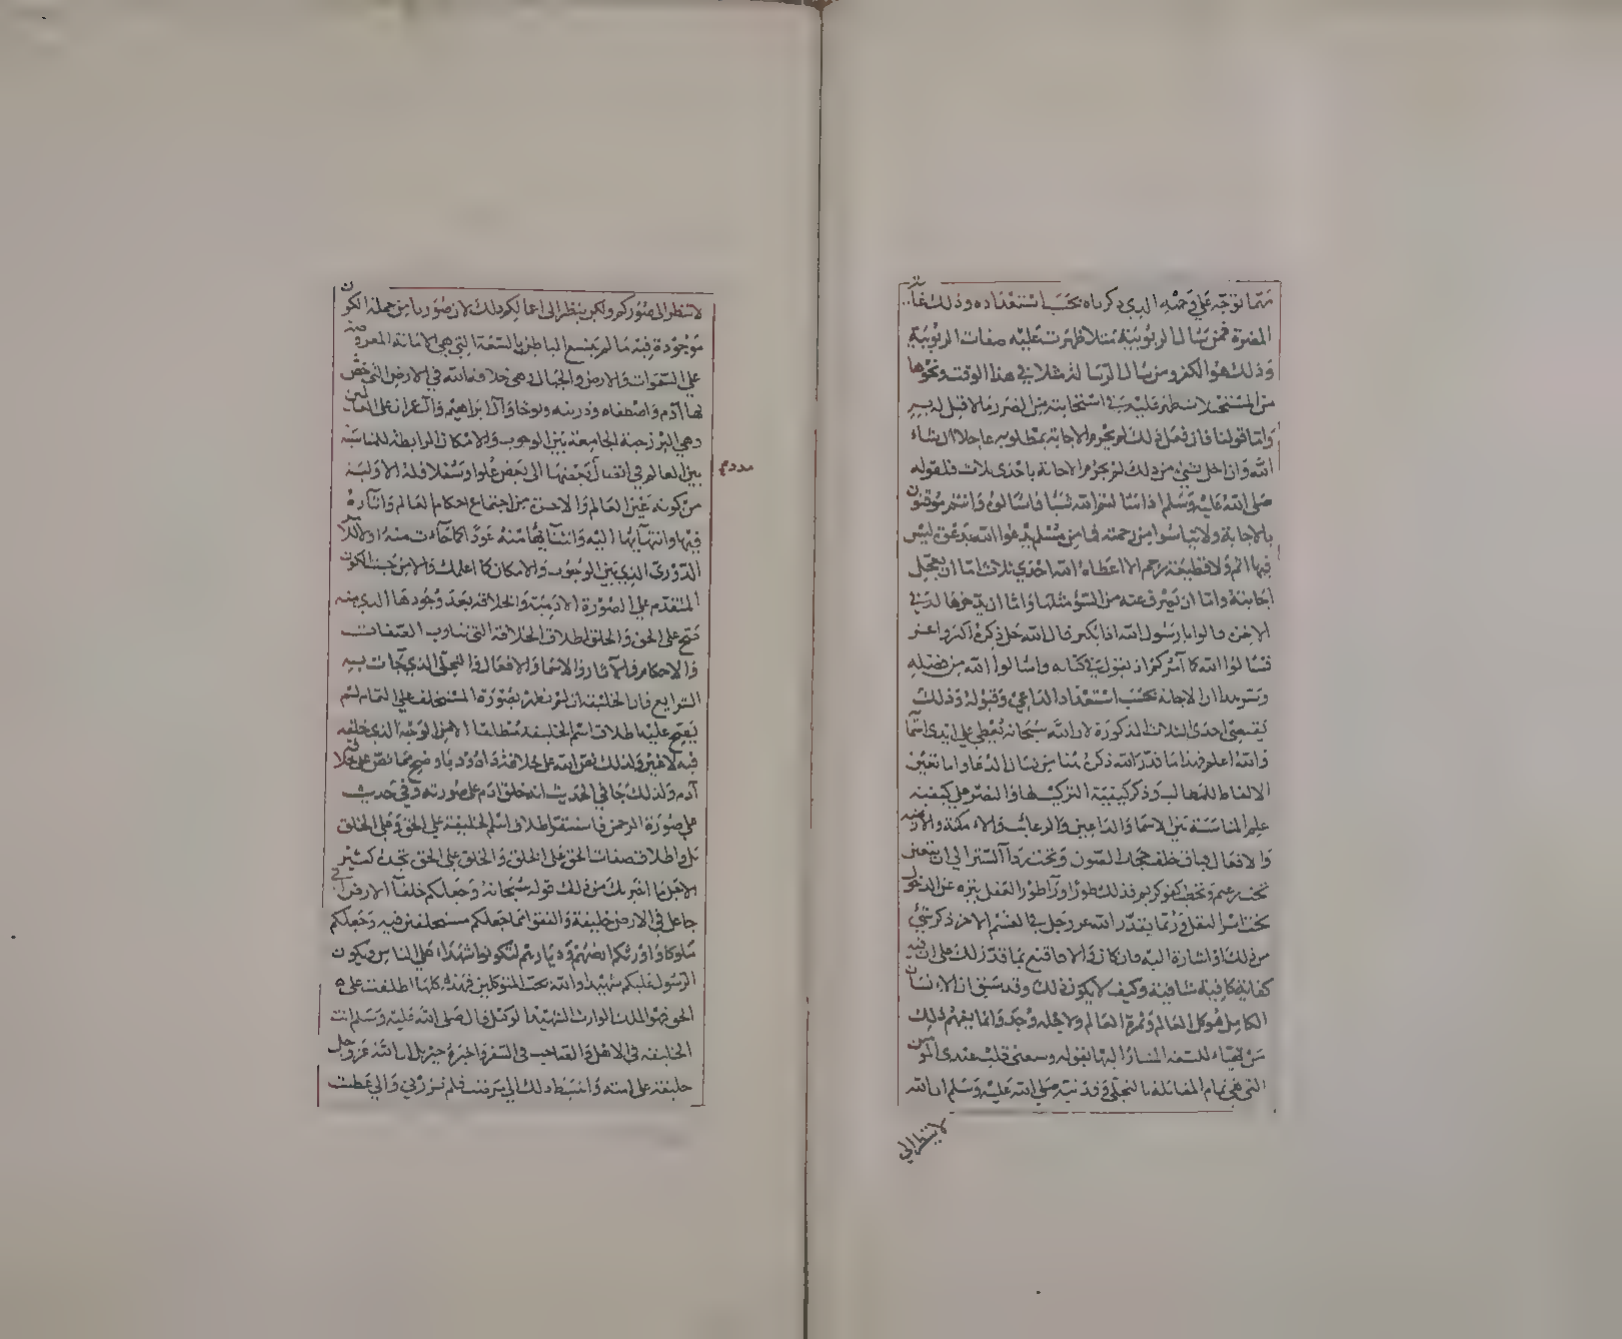 مهما توجه على وجهه الذي ذكرناه بحسب استعداده وذلك
المضرة فمن سال الربوبية مثلا ظهرت عليه صفات الربوبية
وذلك هو الكفر ومن سال الرسالة مثلا في هذا الوقت ونحوها
من المستحيلات ظهر عليه في استجابته من الضرر ما لا قبل له به
واما قولنا فان فعل ذلك لم يحرم الاجابة بمطلوبه عاجلا ان شاء
الله وان اخل بشيء من ذلك لم يحرم الاجابة باحدى ثلاث فلقوله
صلى الله عليه وسلم اذا سالتم الله شيئا فاسالوه وانتم موقنون
بالاجابة ولا تياسوا من رحمته فما من مسلم يدعوا الله بدعوة ليس
فيها اثم ولا قطيعة رحم الا اعطاه الله احدي ثلاث اما ان يعجل
اجابته واما ان يصرف عنه من السوء مثلها واما ان يدخرها له في
الاخرة قالوا يا رسول الله اذا نكثر قال الله جل ذكره اكثر واعز
فسالوا الله كما آمركم اذ يقول في كتابه واسالوا الله من فضله
الاجابة بحسب استعداد الداعي وقبوله وذلك
يقتضي احدى الثلاث المذكورة لان الله سبحانه يعطي على ايدي اسمآ
والله اعلم فهذا ما قدر الله ذكره من شان الدعا واما تعين
الالفاظ للمطالب وذكر كيفية التركيب لها والنص على كيفية
علم المناسبة بين الاسما والداعين والرغائب والامكنة والازمنة
والافعال فباق خلف حجاب الصون وتحت ردآ الستر الى ان
تحت سر النقل وربما يقدر الله عز وجل في القسم الاخر ذكر شيء
من ذلك او اشارة اليه فان كان والا فاقنع بما قدر لك على ان فيه
كفاية كافية شافية وكيف لا يكون ذلك وقد سبق ان الانسان
الكامل هو كل العالم وثمرة العالم ولاجله وجد وانما يفهم ذلك
من للسعة المشار اليها بقوله وسعني قلب عبدي المومن
التي هي تمام المقابلة بالتجلي وقد نبه صلى الله عليه وسلم ان الله
لا ينظر الي
لا ينظر الى صوركم ولكن ينظر الى اعمالكم وذلك لان صورنا من جملة الكون
موجودة فيه ما لم يتسع الباطن بالسعة التي هي الامانة المعروضة
على السموات والارض والجبال وهي خلافة الله في الارض التي خص
بها آدم واصطفاه وذريته ونوحا وآل ابراهيم وآل عمران على العالمين
وهي البرزخية الجامعة بين الوجوب والامكان الرابطة للمناسبة
بين العالم في اتصال بعضها الى بعض علوا وسفلا فله الاولية
من كونه عين العالم والاخرة من اجتماع احكام العالم وآثاره
فيها وانتهايها اليه وانشايها منه عودا كما جآءت منه اولا
الدوري الذي بين الوجوب والامكان كما اعلمك فالامر حبسا لكون
المتقدم على الصورة الادمية والخلافة بعد وجودها الذي منه
فتح على الحق والخلق اطلاق الخلافة التي تناوب الصفات
والاحكام والآثار والاسما والافعال والتجلي الذي جات به
الشرايع فان الخليفة ان لم يظهر بصورة المستخلف على التمام لم
يفتح عليه اطلاق اسم الخليفة مطلقا الا من الوجه الذي خلفه
فيه لا غير ولذلك نص الله على خلافة داوود باوضح مما نص على خلافة
آدم ولذلك جا في الحديث انه خلق ادم على صورته وفي حديث
على صورة الرحمن فاستقر اطلاق اسم الخليفة على الحق وعلى الخلق
بل واطلاق صفات الحق على الخلق والخلق على الحق تجده كثير
لاجل ما اخبرتك من ذلك قوله سبحانه وجعلكم خلفآ الارض اني
جاعل في الارض خليفة وانفقوا مما جعلكم مستخلفين فيه وجعلكم
ملوكا واورثكم ارضهم وديارهم لتكونوا شهداء على الناس ويكون
الرسول عليكم شهيدا والله يحب المتوكلين فهذه كلها اطلقت على
الحق فهو الملك الوارث الشهيد الوكيل قال صلى الله عليه وسلم انت
الخليفة في الاهل والصاحب في السفر واخبره جبريل ان الله عز وجل
خليفته على امته وانبسط ذلك الى مرضت فلم تزرني والى عطشت